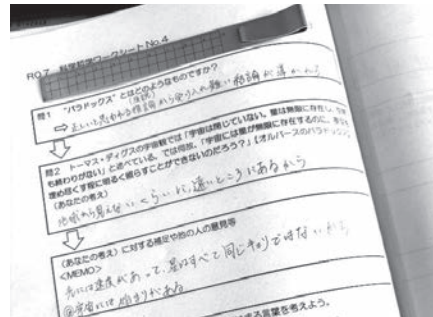 R07 科学哲学ワークシート No.4
問1 "パラドックス"とはどのようなものですか?
(仮説)
⇨ 正しいと思われる推論から受け入れ難い結論が導かれる
問2 トーマス・ディグスの宇宙観では「宇宙は閉じていない。星は無限に存在し、
も終わりがない」と述べている。では何故、「宇宙には星が無限に存在するのに、
埋め尽くす程に明るく照らすことができないのだろう?」【オルバースのパラドックス】
(あなたの考え)
地球から見えないくらいに、遠いところにあるから
(あなたの考え)に対する補足や他の人の意見等
<MEMO>
光には速度があって、星はすべて同じキョリではないから
@宇宙には始まりがある
する言葉を考えよう。